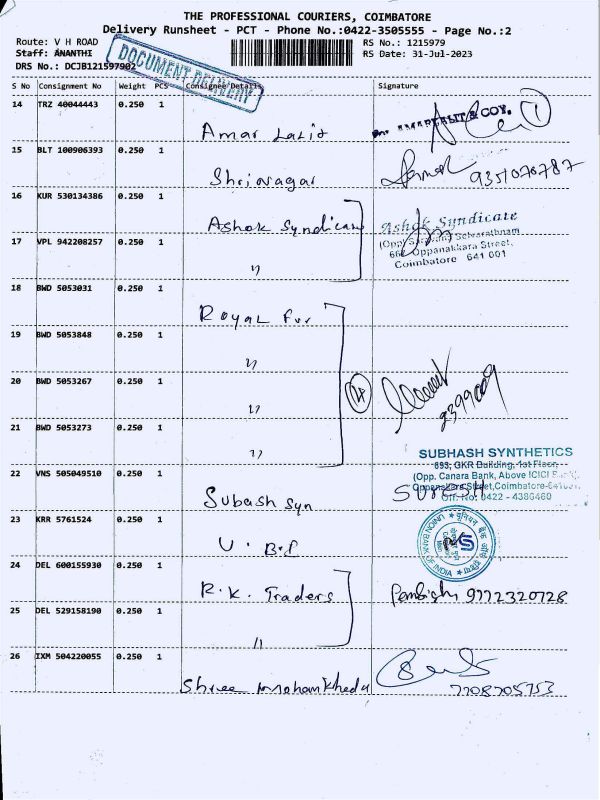 THE PROFESSIONAL COURIERS, COIMBATORE
Delivery Runsheet - PCT - Phone No.:0422-3505555 - Page No.:2
Route: V H ROAD
Staff: ANANTHI
DRS No.: DCJB121597902
RS No.: 1215979
RS Date: 31-Jul-2023
DOCUMENT DELIVERY
S No Consignment No Weight PCS Consignee Details Signature
14 TRZ 40044443 0.250 1 Amar Lalit & COY. 1
15 BLT 100906393 0.250 1 Shrinagar
16 KUR 530134386 0.250 1 Ashok Syndicate
17 VPL 942208257 0.250 1 "
Ashok Syndicate
(Opp)
Oppanakkara Street,
Coimbatore 641 001
18 BWD 5053031 0.250 1 Royal Fur
19 BWD 5053848 0.250 1 "
20 BWD 5053267 0.250 1 " 4
21 BWD 5053273 0.250 1 "
SUBHASH SYNTHETICS
693, GKR Building, 1st Floor,
(Opp. Canara Bank, Above ICICI
Oppanakara Street, Coimbatore-641001.
Off. No: 0422 - 4380460
22 VNS 505049510 0.250 1 Subash Syn SURESH
23 KRR 5761524 0.250 1 U.B.I
UNION BANK OF INDIA
24 DEL 600155930 0.250 1 R.K. Traders 9772320728
25 DEL 529158190 0.250 1 "
26 IXM 504220055 0.250 1 Shree Mohankheda
7708705753